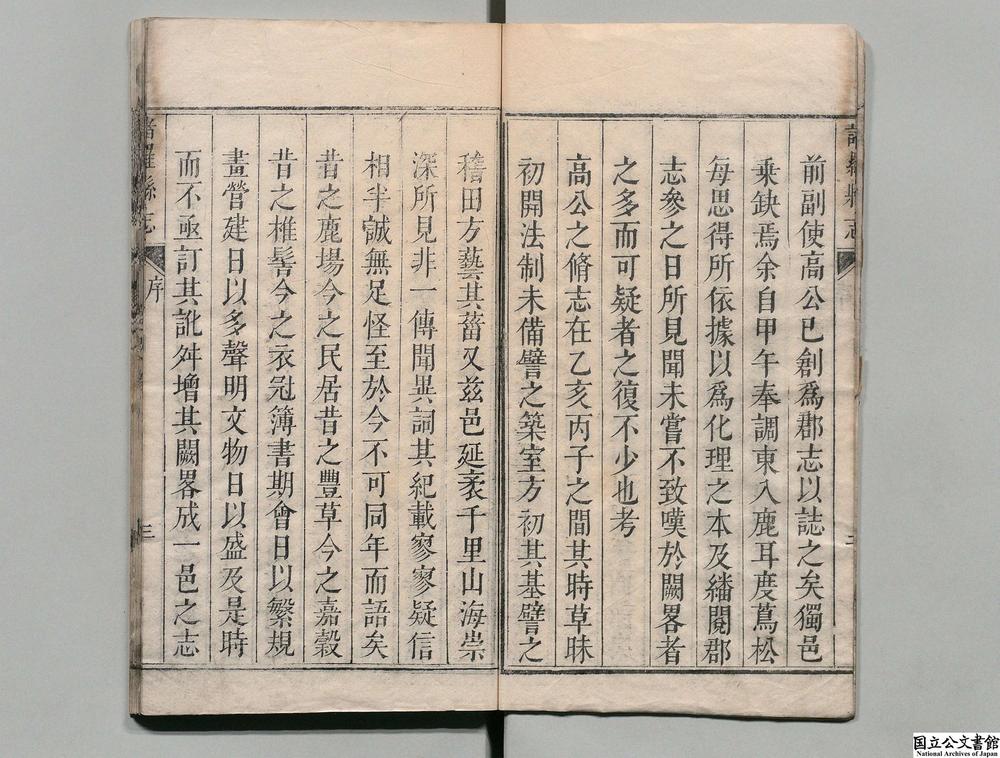 前副使高公已創爲郡志以誌之矣獨邑
乗缺焉余自甲午奉調東入鹿耳度蔦松
每思得所依據以爲化理之本及繙閱郡
志參之日所見聞未嘗不致嘆於闕畧者
之多而可疑者之復不少也考
高公之脩志在乙亥丙子之間其時草昧
初開法制未備譬之築室方初其基譬之
稽田方藝其菑又茲邑延袤千里山海崇
深所見非一傳聞異詞其紀載寥寥疑信
相半誠無足怪至於今不可同年而語矣
昔之鹿場今之民居昔之豐草今之嘉穀
昔之椎髻今之衣冠簿書期會日以繁規
畫營建日以多聲明文物日以盛及是時
而不亟訂其訛舛增其闕畧成一邑之志
諸羅縣志
序
三
国立公文書館
National Archives of Japan